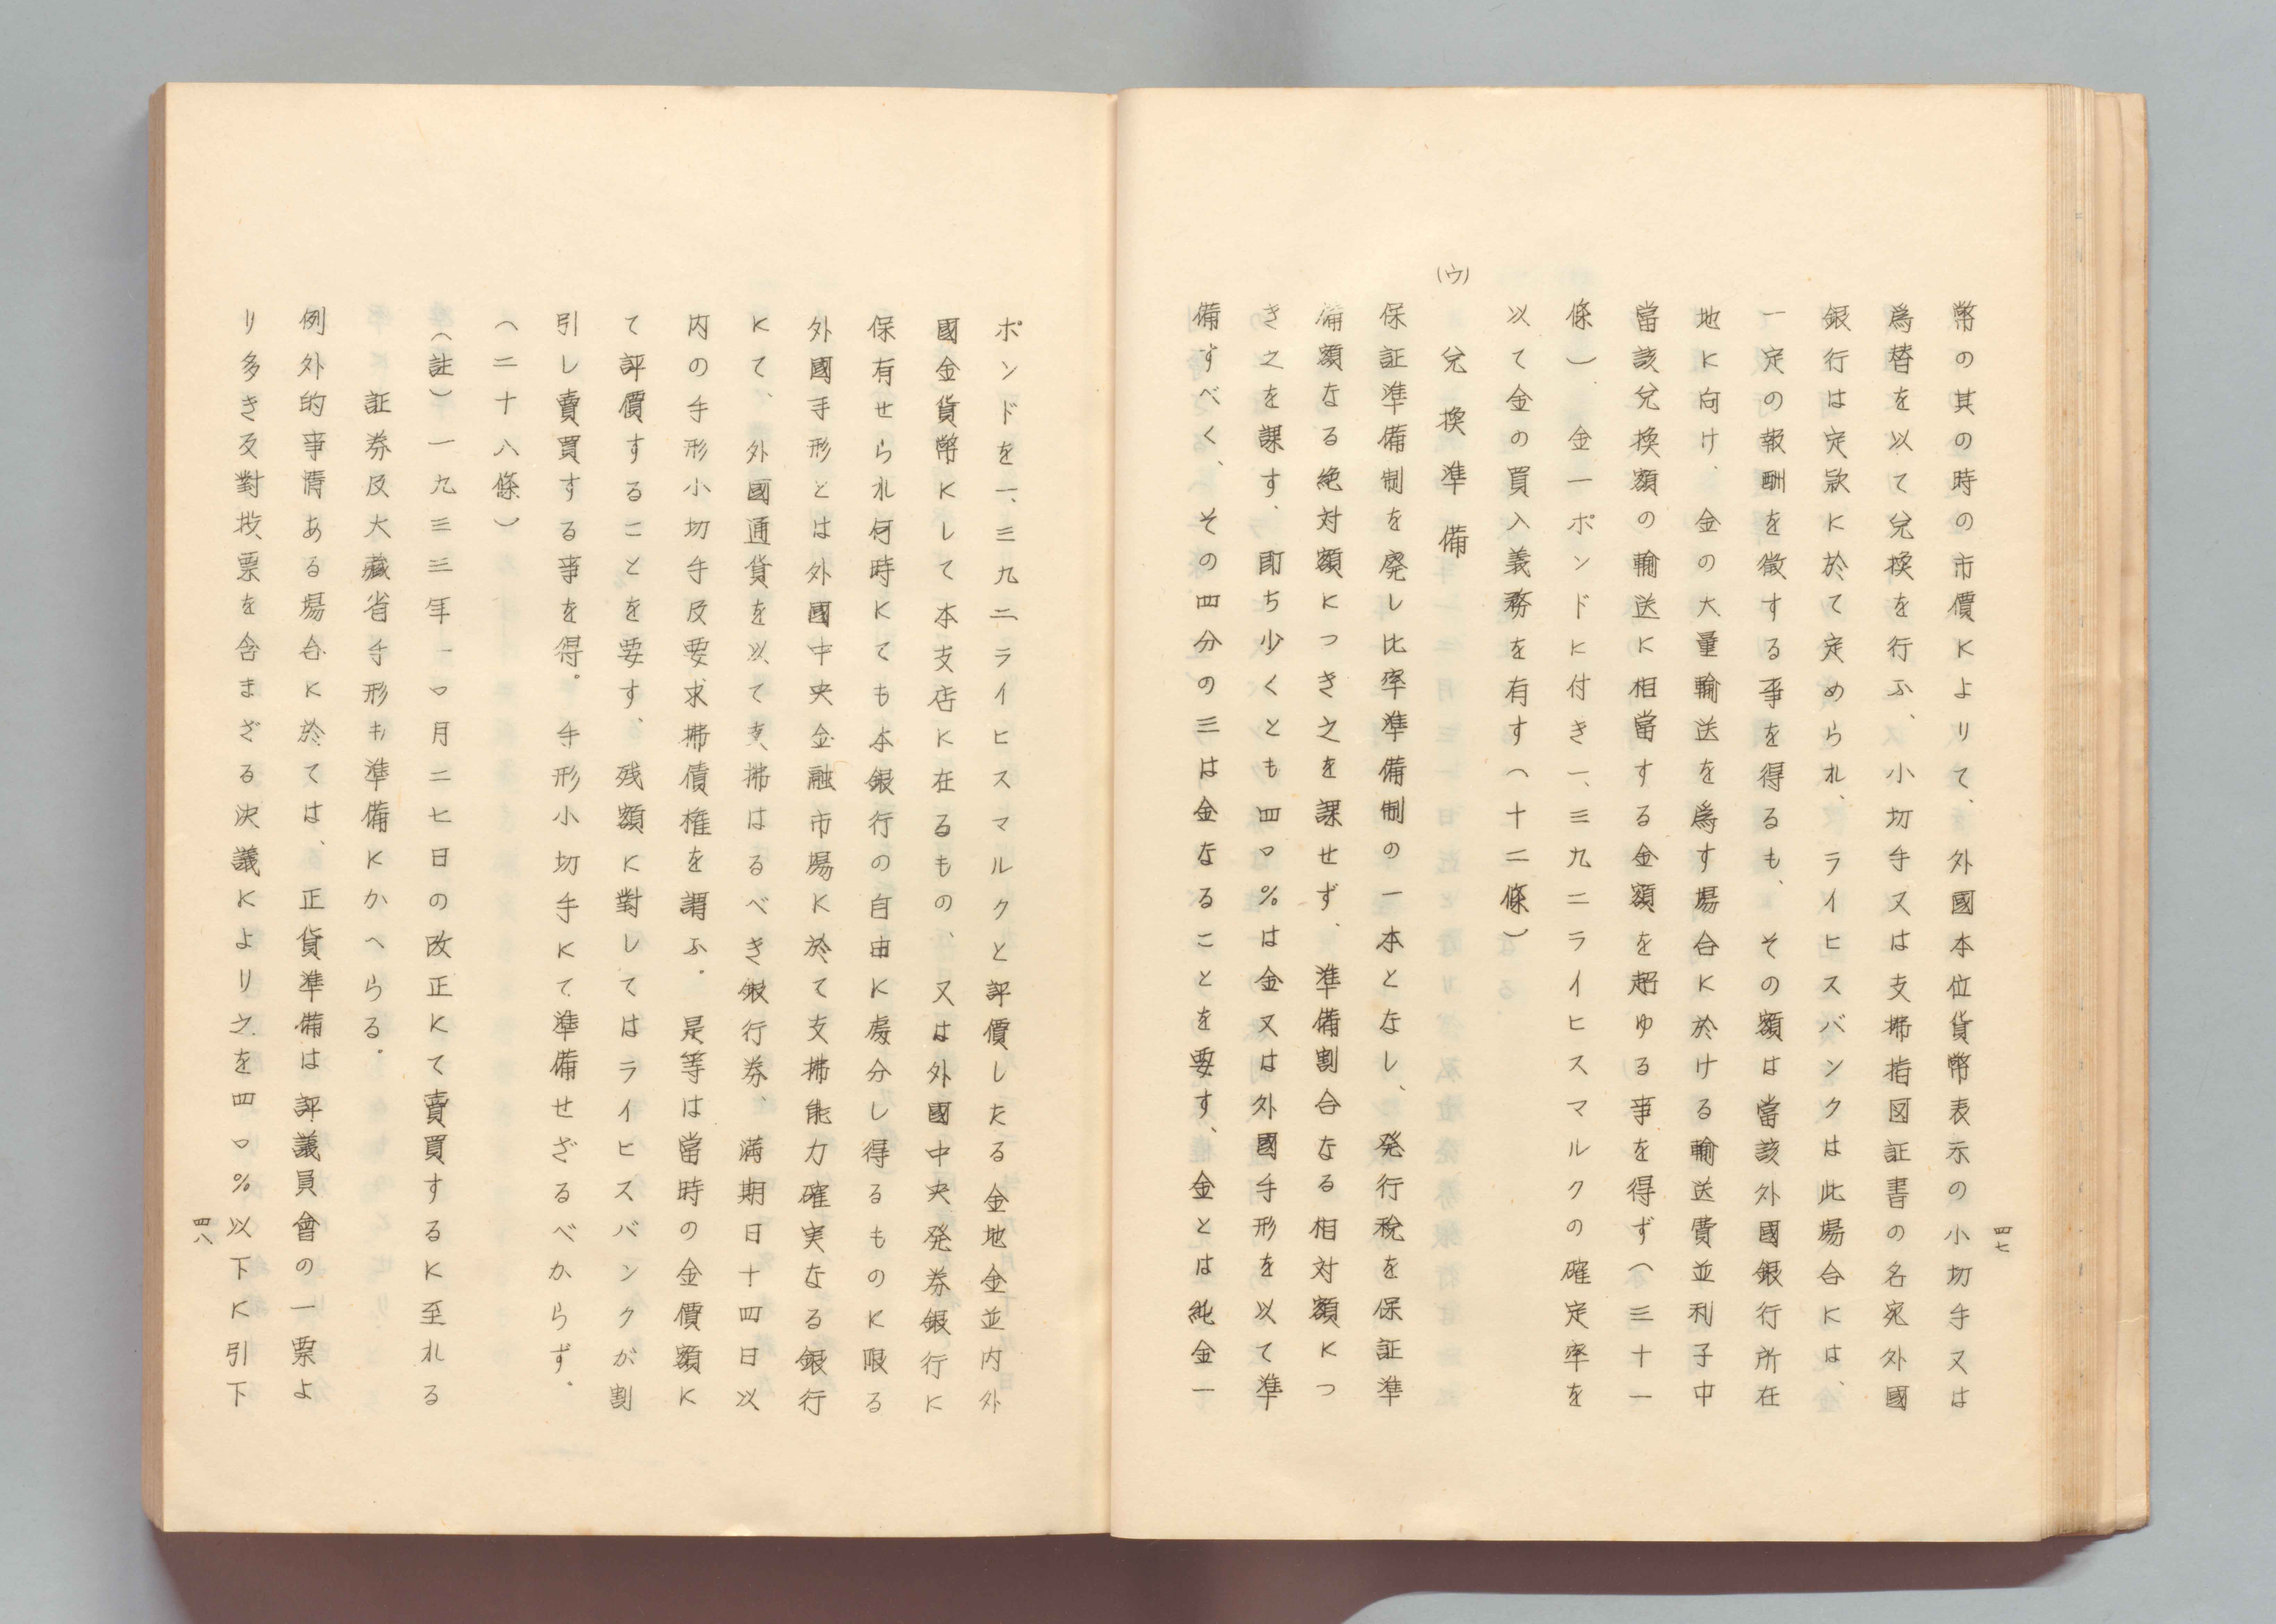 四七
幣の其の時の市價によりて、外國本位貨幣表示の小切手又は
爲替を以て兌換を行ふ、小切手又は支拂指図証書の名宛外國
銀行は定款に於て定められ、ライヒスバンクは此場合には、
一定の報酬を徴する事を得るも、その額は當該外國銀行所在
地に向け、金の大量輸送を爲す場合に於ける輸送費並利子中
當該兌換額の輸送に相當する金額を超ゆる事を得ず（三十一
條）、金一ポンドに付き一、三九二ライヒスマルクの確定率を
以て金の買入義務を有す（十二條）
(ウ)　兌換準備
保証準備制を廃し比率準備制の一本となし、発行稅を保証準
備額なる絶対額につき之を課せず、準備割合なる相対額につ
き之を課す、即ち少くとも四〇％は金又は外國手形を以て準
備すべく、その四分の三は金なることを要す、金とは純金一
ポンドを一、三九二ライヒスマルクと評價したる金地金並内外
國金貨幣にして本支店に在るもの、又は外國中央発券銀行に
保有せられ何時にても本銀行の自由に處分し得るものに限る
外國手形とは外國中央金融市場に於て支拂能力確実なる銀行
にて、外國通貨を以て支拂はるべき銀行券、満期日十四日以
内の手形小切手及要求拂債権を謂ふ。是等は當時の金價額に
て評價することを要す、残額に對してはライヒスバンクが割
引し賣買する事を得。手形小切手にて準備せざるべからず。
（二十八條）
（註）一九三三年一〇月二七日の改正にて賣買するに至れる
証券及大藏省手形も準備にかへらる。
例外的事情ある場合に於ては、正貨準備は評議員會の一票よ
り多き反對投票を含まざる決議により之を四〇％以下に引下
四八